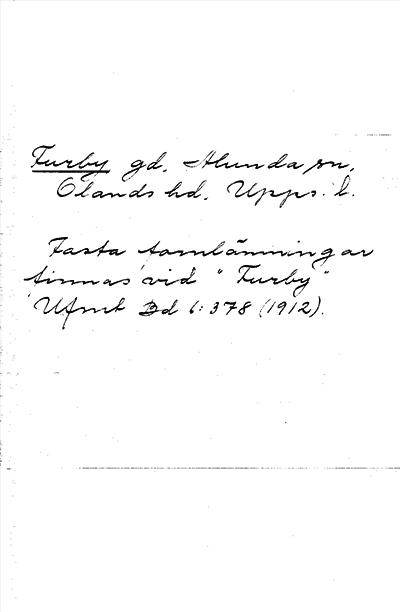 Furby gd, Alunda sn,
Olands hd, Upps. l.
Fasta fornlämningar
finnas vid "Furby"
Ufmt Bd 6:378 (1912).